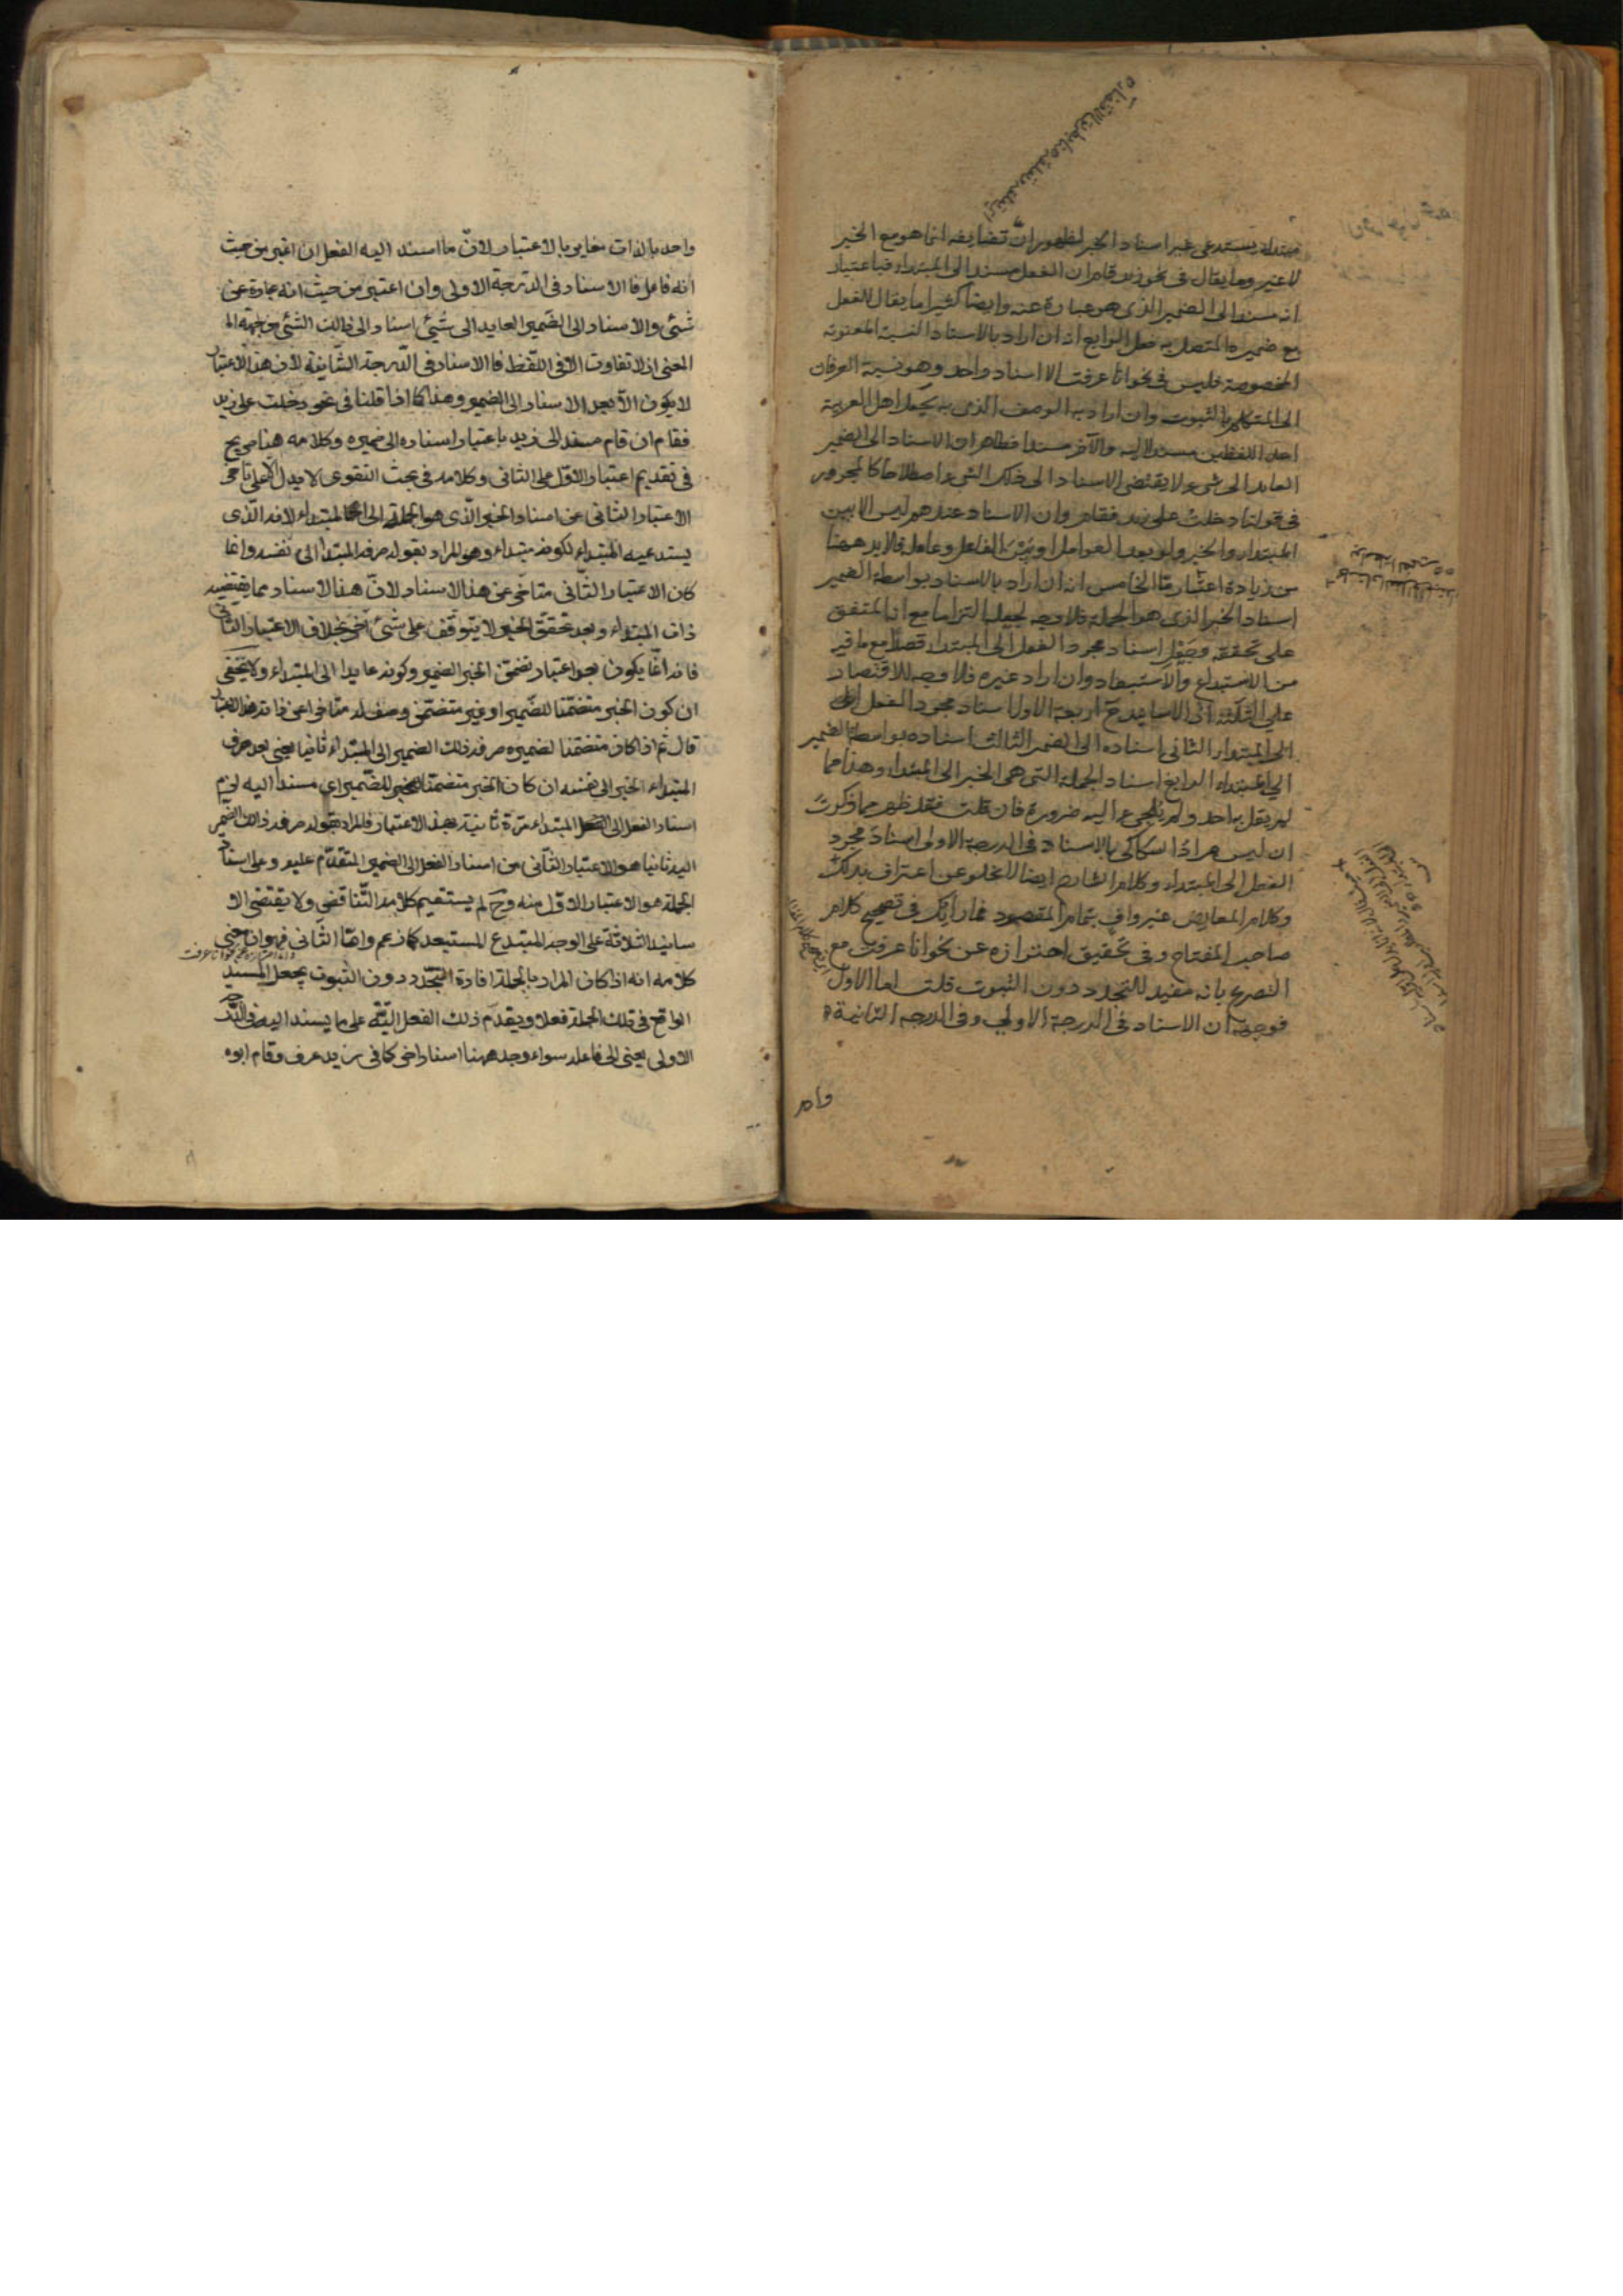 مبتداء يستدعى غير اسناد الخبر لظهور انّ تضايفه انما هو مع الخبر
لا غير وما يقال فى نحو زيد قام ان الفعل مسند الى المبتداء فباعتبار
انه مسند الى الضمير الذى هو عبارة عنه وايضا كثيرا ما يقال للفعل
مع ضميره المتصل به فعل الرابع انه ان اراد بالاسناد النسبة المعنوية
المخصوصة فليس فى نحو انا عرفت الا اسناد واحد وهو نسبة العرفان
الى المتكلم بالثبوت وان اراد به الوصف الذى به يجعل اهل العربية
احد اللفظين مسندا اليه والآخر مسندا فظاهر ان الاسناد الى الضمير
العايد الى شىء لا يقتضى الاسناد الى ذلك الشىء اصطلاحا كالمجرور
فى قولنا دخلت على زيد فقام وان الاسناد عندهم ليس الا بين
المبتداء والخبر ولو بعد العوامل او بين الفاعل وعامله فلا بد ههنا
من زيادة اعتبار مّا الخامس انه ان اراد بالاسناد بواسطة الضمير
اسناد الخبر الذى هو الجملة فلا وجه لجعله التزاما مع انه المتفق
على تحققه وجعل اسناد مجرد الفعل الى المبتداء قصدا مع ما فيه
من الابتداع والاستبعاد وان اراد غيره فلا وجه للاقتصار
على الثلثة لان الاسانيد ح اربعة الاول اسناد مجرد الفعل
الى المبتداء الثانى اسناده الى الضمير الثالث اسناده بواسطة الضمير
الى المبتداء الرابع اسناد الجملة التى هى الخبر الى المبتداء وهذا مما
لم يقل به احد ولم يلجىء اليه ضرورة فان قلت فقد ظهر مما ذكرت
ان ليس مراد السكاكى بالاسناد فى الدرجة الاولى اسناد مجرد
الفعل الى المبتداء وكلام الشارح ايضا لا يخلو عن اعتراف بذلك
وكلام المعارض غير واف بتمام المقصود فما رأيك فى تصحيح كلام
صاحب المفتاح وفى تحقيق احترازه عن نحو انا عرفت مع
التصريح بانه مفيد للتجدد دون الثبوت قلت اما الاول
فوجهه ان الاسناد فى الدرجة الاولى وفى الدرجه الثانية
واحد
واحد بالذات مغاير بالاعتبار لانّ ما اسند اليه الفعل ان اعتبر من حيث
انه فاعل فالاسناد فى الدرجة الاولى وان اعتبر من حيث انه عبارة عن
شىء والاسناد الى الضمير العايد الى شىء اسناد الى ذالك الشىء من جهة
المعنى اذ لا تفاوت الا فى اللفظ فالاسناد فى الدرجة الثانية لان هذا الاعتبار
لا يكون الا بعد الاسناد الى الضمير وهذا كما اذا قلنا فى نحو دخلت على زيد
فقام ان قام مسند الى زيد باعتبار اسناده الى ضميره وكلامه هنا صريح
فى تقديم اعتبار الاول على الثانى وكلامه فى بحث التقوى لا يدل الا على تاخر
الاعتبار الثانى عن اسناد الخبر الذى هو الجملة الى المبتداء لانه الذى
يستدعيه المبتداء لكونه مبتداء وهو المراد بقوله صرفه المبتداء الى نفسه وانما
كان الاعتبار الثانى متاخر عن هذا الاسناد لانّ هذا الاسناد مما يقتضيه
ذات المبتداء وبعد تحقق الخبر لا يتوقف على شىء آخر بخلاف الاعتبار الثانى
فانه انما يكون بعد اعتبار تضمن الخبر الضمير وكونه عايدا الى المبتداء ولا يخفى
ان كون الخبر متضمنا للضمير او غير متضمن وصف له متاخر عن ذاته
قال ثم اذا كان متضمنا لضميره صرفه ذلك الضمير الى المبتداء ثانيا يعنى بعد صرف
المبتداء الخبر الى نفسه ان كان الخبر متضمنا للضمير اى مسندا اليه لزم
اسناد الفعل الى المبتداء مرة ثانية بهذا الاعتبار فالمراد بقوله صرفه ذلك الضمير
اليه ثانيا هو الاعتبار الثانى من اسناد الفعل الى الضمير المتقدّم عليه وعلى اسناد
الجملة هو الاعتبار الاول منه وح لم يستقيم كلامه التناقض ولا يقتضى الا
سانيد الثلاثة على الوجه المبتدع المستبعد كما زعم وامّا الثانى فهو ان معنى
كلامه انه اذا كان المراد بالجملة افادة التجدد دون الثبوت يجعل المسند
الواقع فى تلك الجملة فعلا ويقدم ذلك الفعل البتّة على ما يسند اليه فى الدرجة
الاولى يعنى الى فاعله سواء وجد ههنا اسناد اخر كما فى زيد عرف وقام ابوه